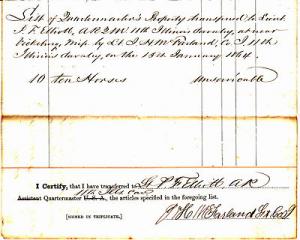 List of Quartermaster's Property transferred to Lieut.
J. F. Elliott, A.R.Q.M. 11th Illinois Cavalry, at near
Vicksburg, Miss. by Lt. J. H. McFarland, Co. I 11th
Illinois Cavalry, on the 15th January 1864.
10 ten Horses Unserviceable
I Certify, that I have transferred to Lt. J. F. Elliott, A.R.
11th Ills Cav
Assistant Quartermaster U. S. A., the articles specified in the foregoing list.
J. H. McFarland
[SIGNED IN TRIPLICATE.]